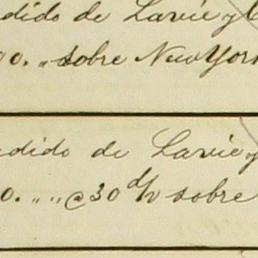 dido de Lavie y C
0. „ sobre New York
edido de Lavie y
0. „ „ @ 30 d/v sobre